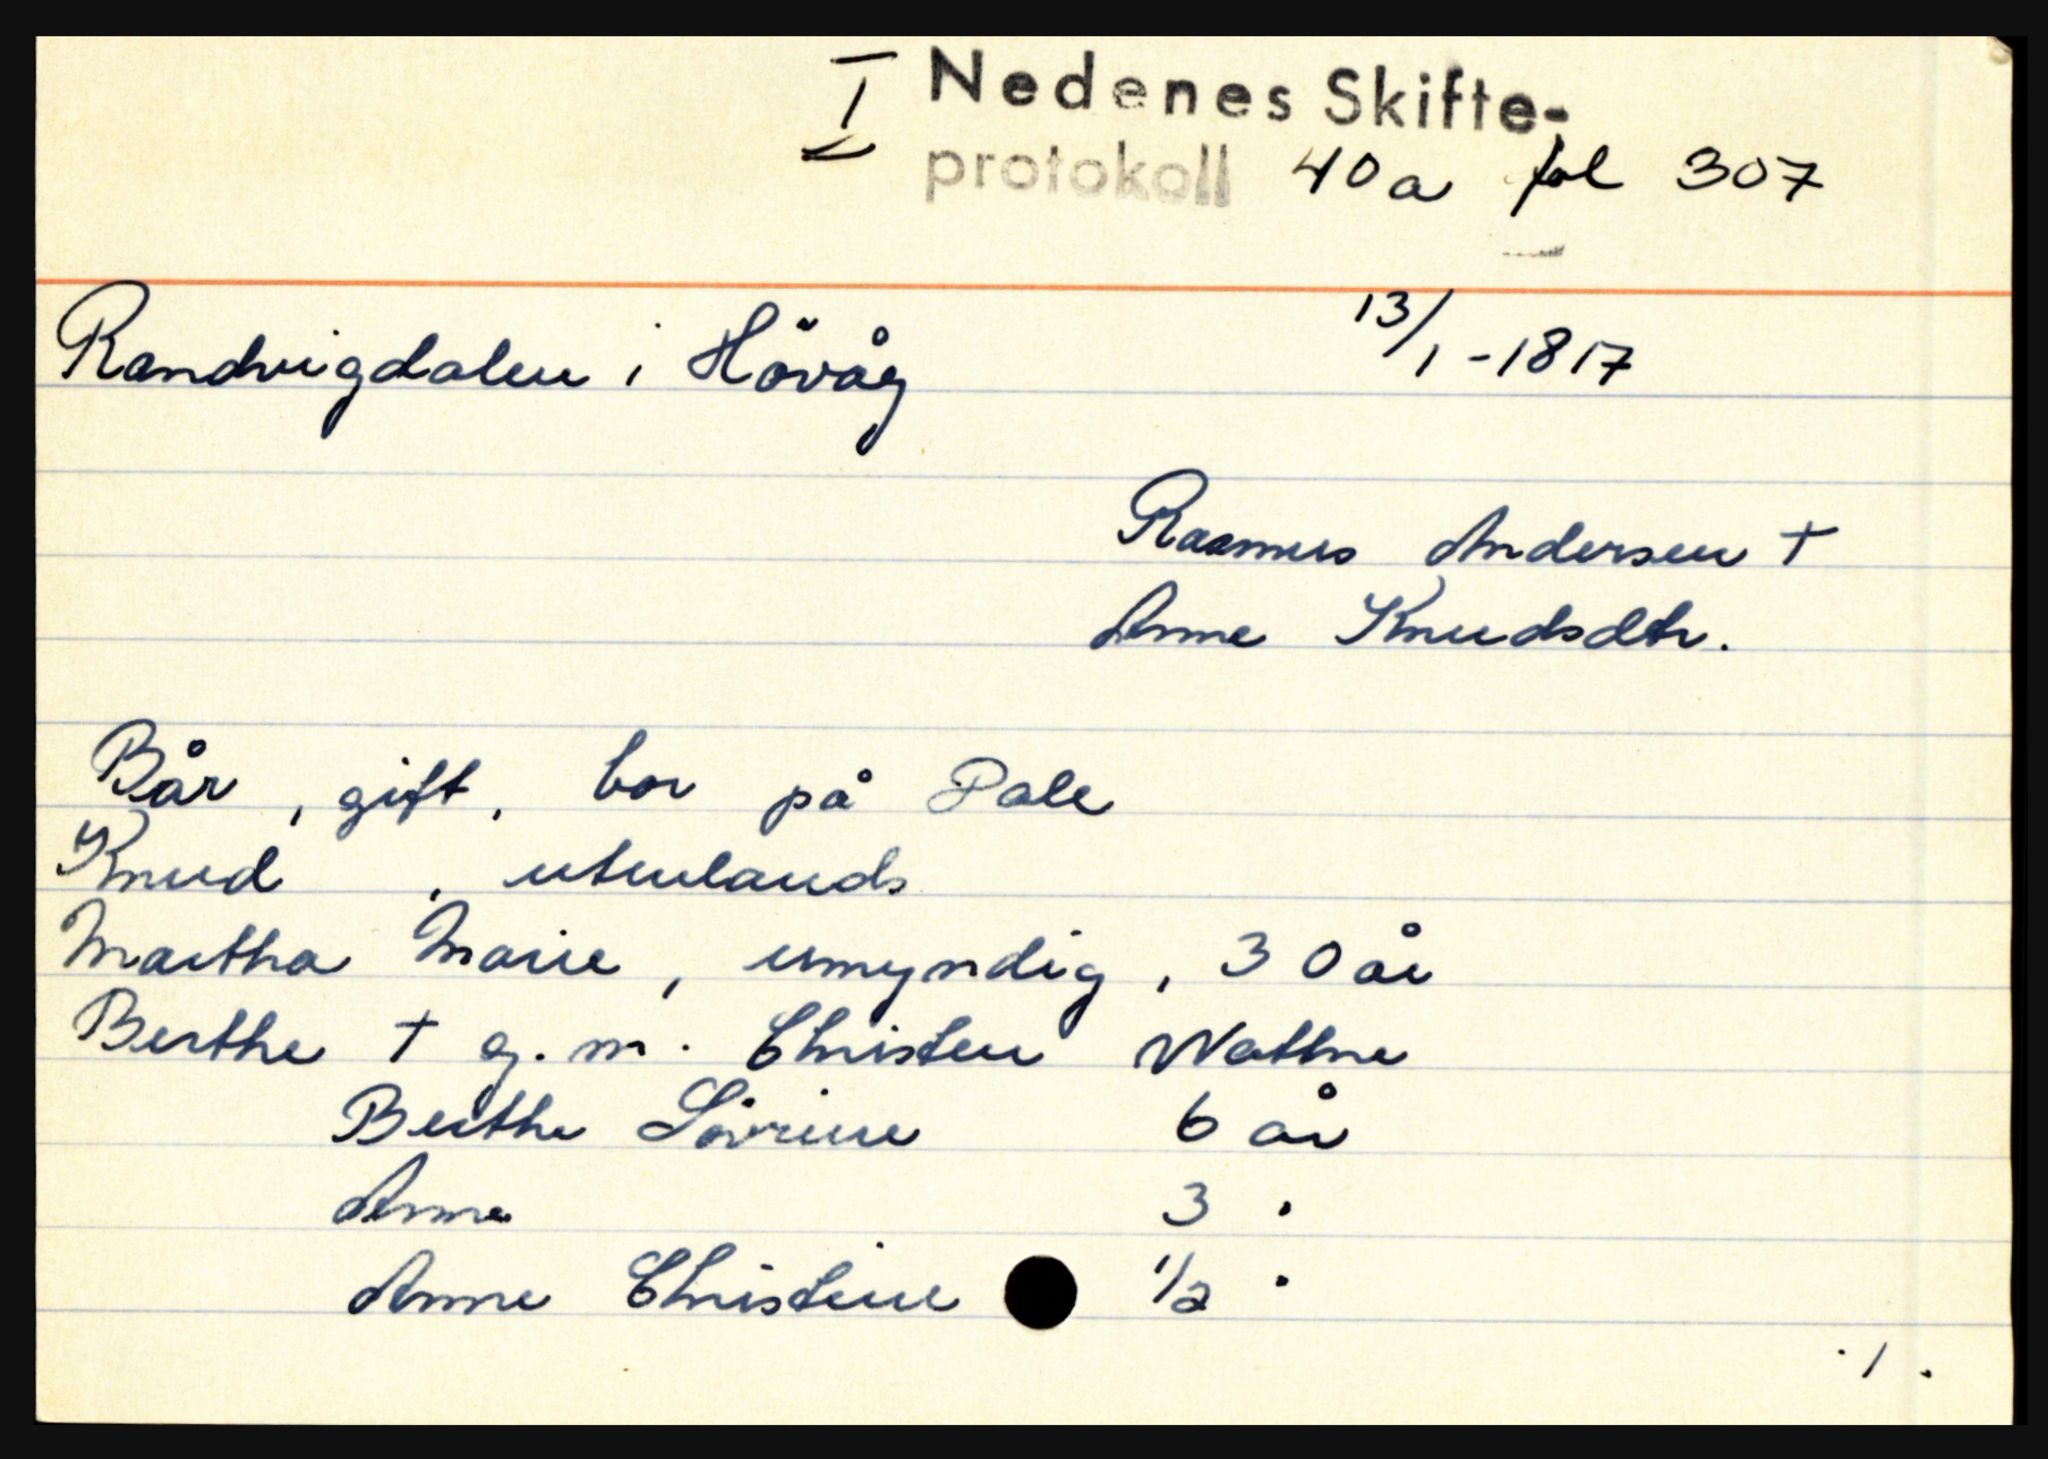 I Nedenes Skifte-
protokoll 40a fol 307
Randvigdalen i Hövåg 13/1-1817
Rasmus Andersen †
Anne Knudsdtr.
Bår, gift, bor på Pale
Knud, utenlands
Martha Marie, umyndig, 30 år
Berthe † g.m. Christen Wathne
Berthe Sövrine 6 år
Anne 3 "
Anne Christine 1/2 "
./.